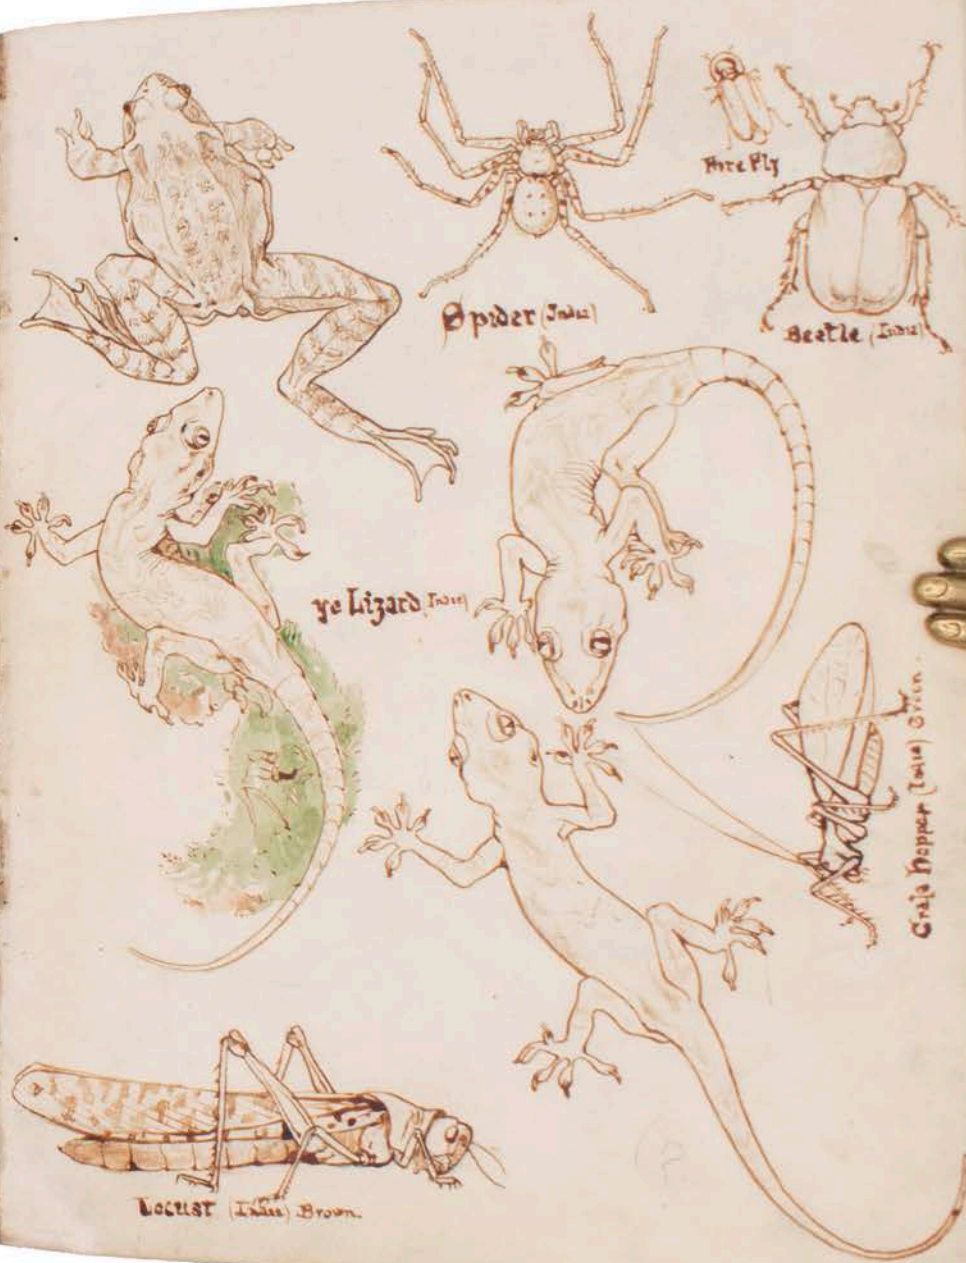 Fire Fly
Spider (India)
Beetle (India)
ye Lizard (India)
Grass Hopper (India) Green.
Locust (India) Brown.